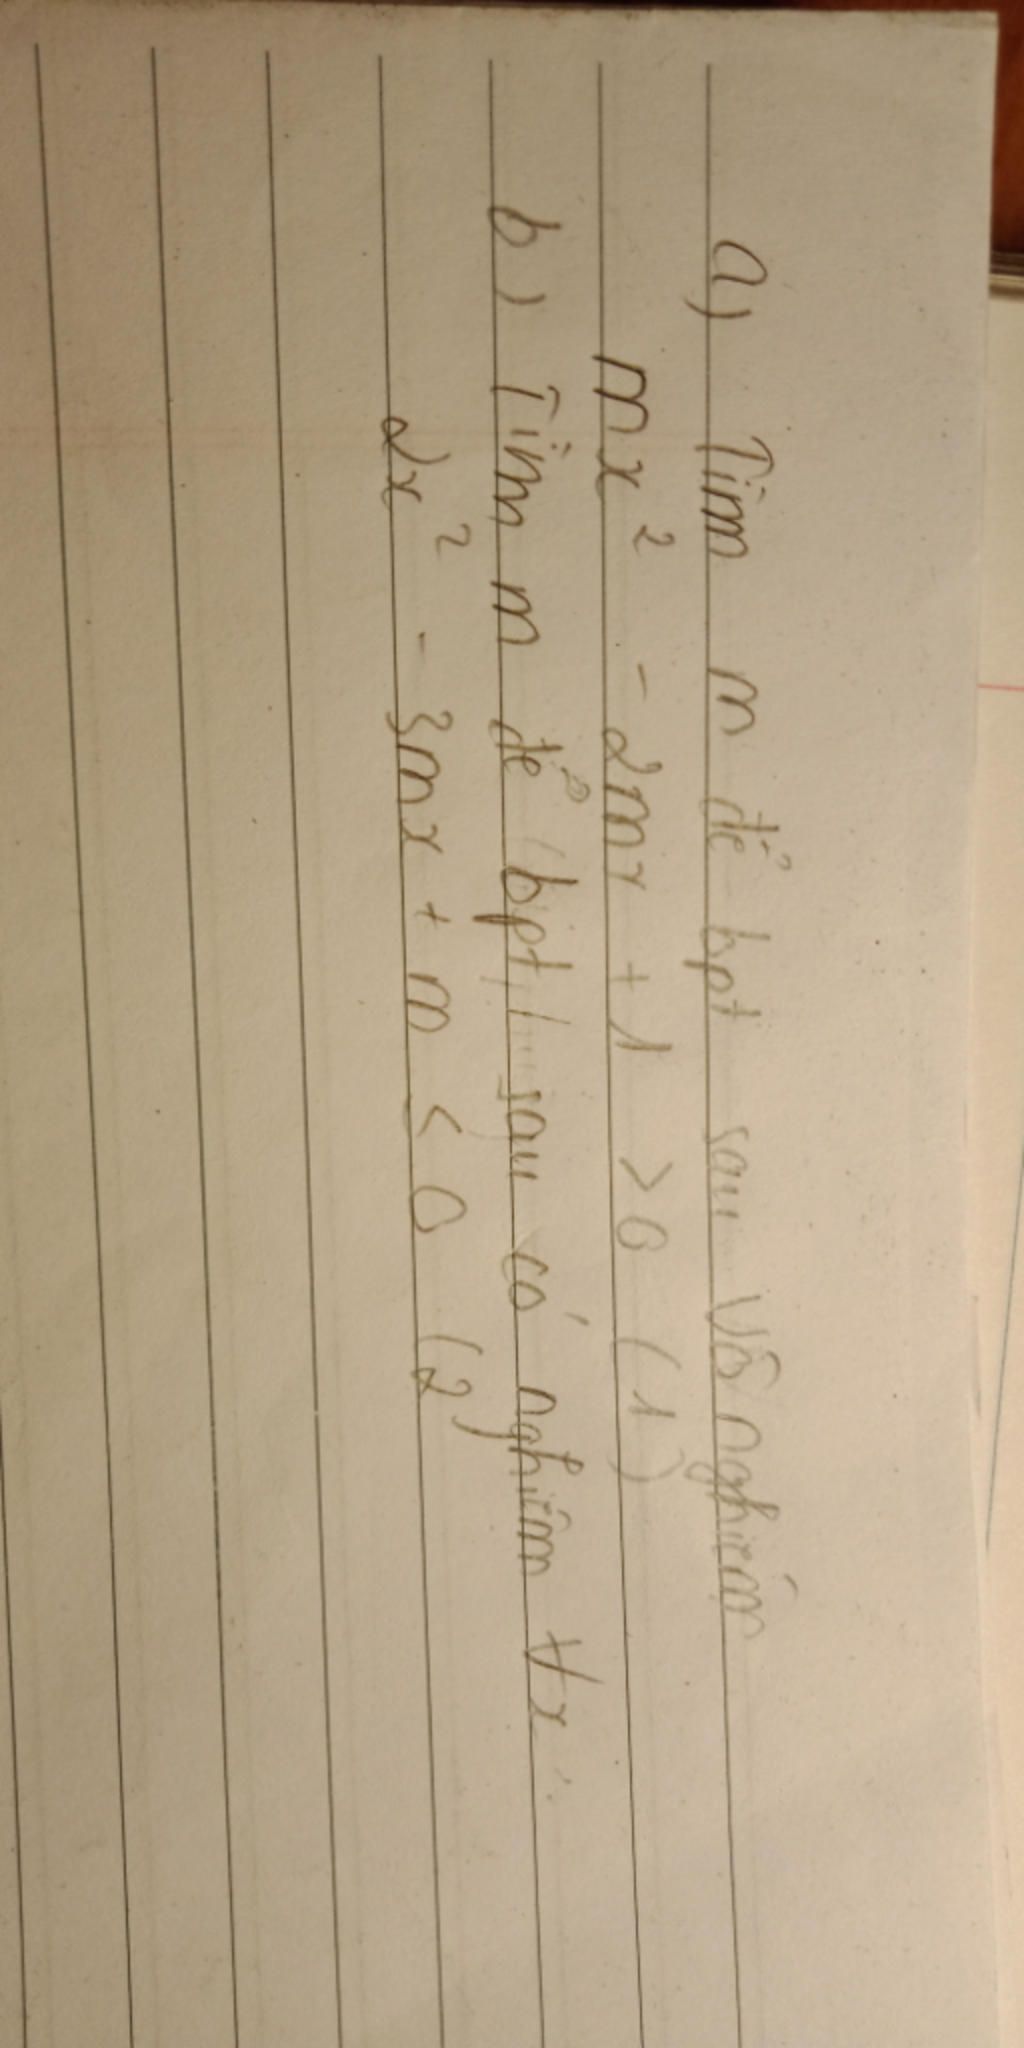 a) Tìm m để bpt sau vô nghiệm
mx² - 2mx + 1 > 0 (1)
b) Tìm m để bpt sau có nghiệm ∀x
2x² - 3mx + m < 0 (2)